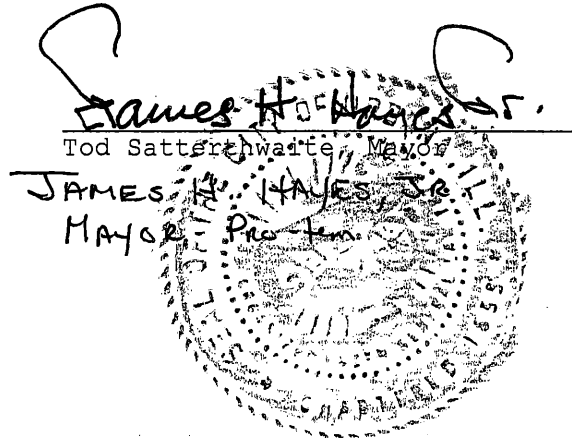 James H. Hayes Jr.
Tod Satterthwaite, Mayor
JAMES H. HAYES, JR
MAYOR Pro-tem
CHARTERED 1855